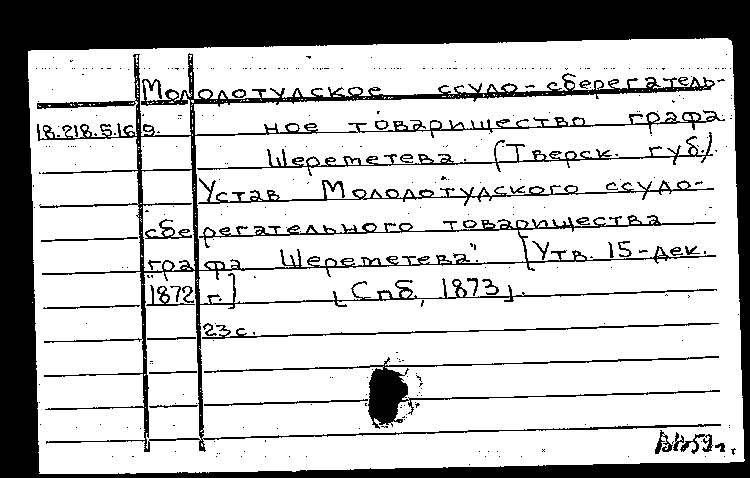 Молодотудское ссудо-сберегатель-
18.218.5.169. ное товарищество графа
Шереметева. (Тверск. губ.)
Устав Молодотудского ссудо-
сберегательного товарищества
графа Шереметева". [Утв. 15-дек.
1872 г.] [Спб, 1873].
23 с.